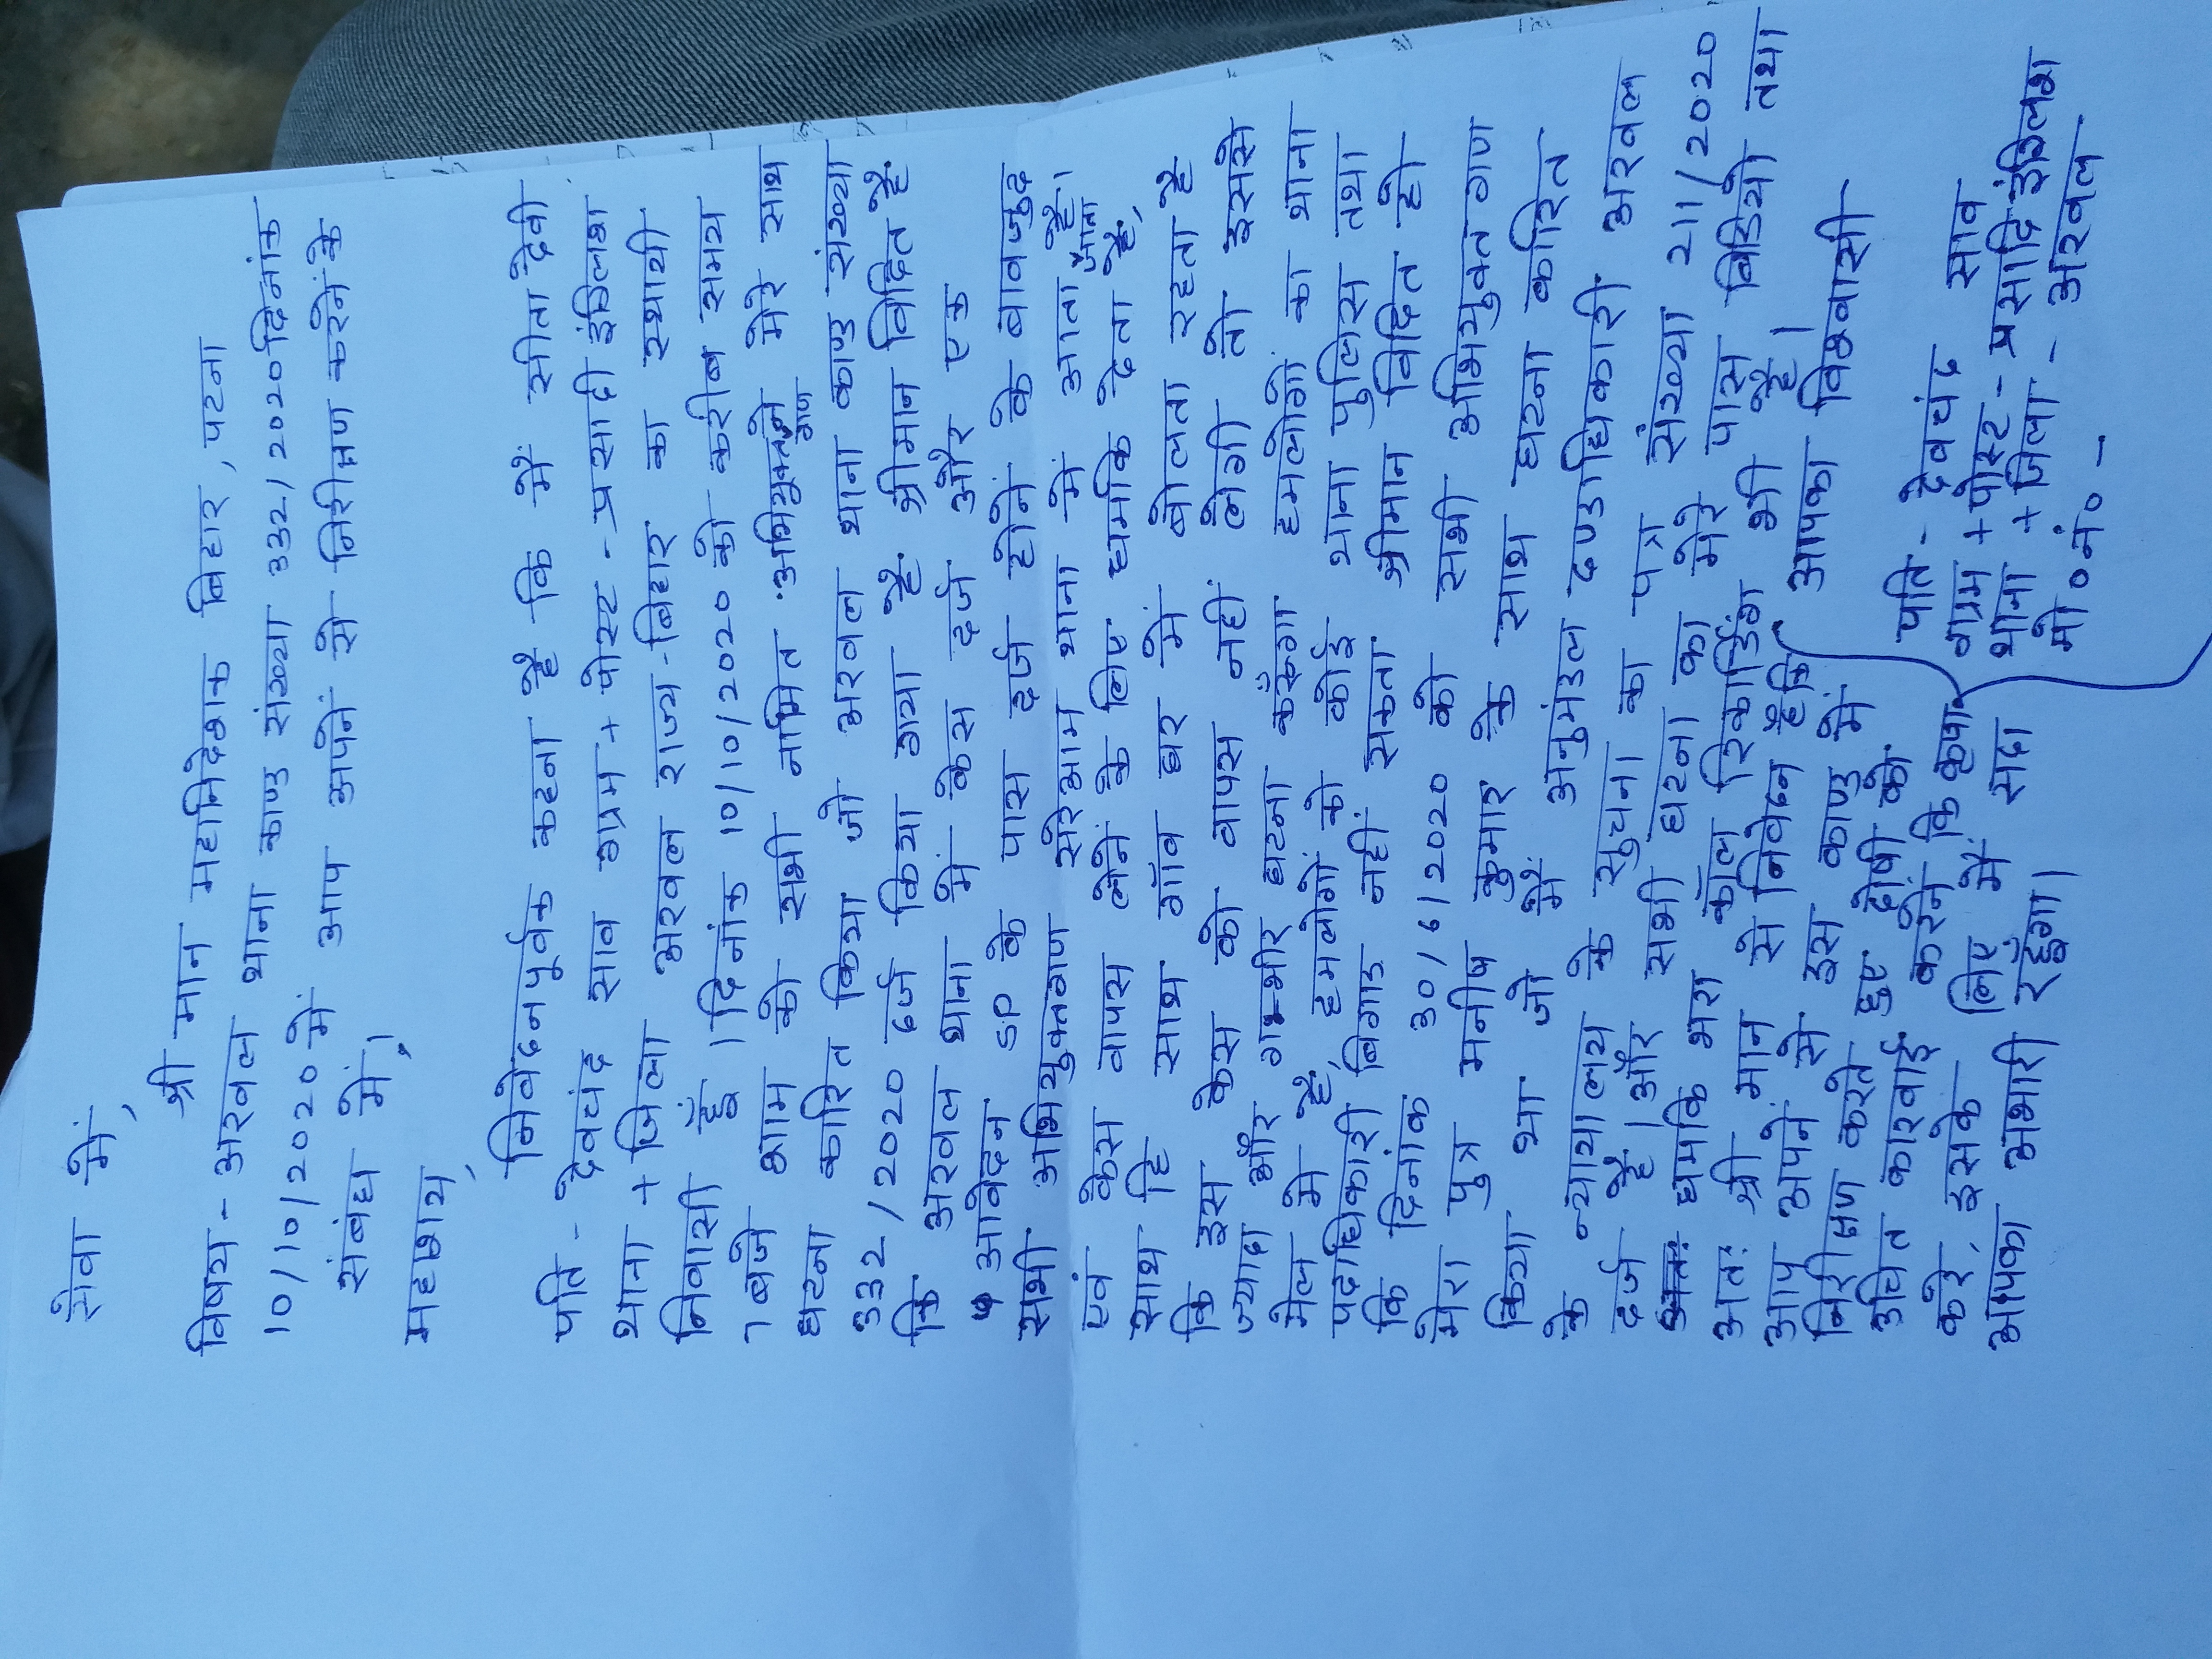 सेवा में,
श्री मान महानिदेशक बिहार, पटना
विषय - अरवल थाना काण्ड संख्या 332/2020 दिनांक
10/10/2020 में आप अपनें से निरीक्षण करनें के
संबंध में।
महाशय,
निवेदनपूर्वक कहना है कि मैं सीता देवी
पति - देवचंद साव ग्राम + पोस्ट - प्रसादी इंग्लिश
थाना + जिला अरवल राज्य - बिहार का स्थायी
निवासी हूँ । दिनांक 10/10/2020 को करीब समय
7 बजे शाम को सभी नामित अभियुक्तगण ने मेरे साथ
घटना कारित किया जो अरवल थाना काण्ड संख्या
332/2020 दर्ज किया गया है श्रीमान विदित है
कि अरवल थाना में केस दर्ज और एक
आवेदन SP के पास दर्ज होनें के बावजुद
सभी अभियुक्तगण सरेआम थाना में आता जाता है।
एवं केस वापस लेनें के लिए धमकि देता है,
साथ हि साथ गाॅव घर में बोलता रहता है
कि इस केस को वापस नहीं लेगी तो इससे
ज्यादा और गम्भीर घटना करूँगा हमलोगों का थाना
मेल मे है, हमलोगों को कोई थाना पुलिस तथा
पदाधिकारी बिगाड़ नहीं सकता श्रीमान विदित हो
कि दिनांक 30/6/2020 को सभी अभियुक्तगण
मेरा पुत्र मनीष कुमार के साथ घटना कारित
किया था जो मैं अनुमंडल दण्डाधिकारी अरवल
के न्यायालय के सुचना का पत्र संख्या 211/2020
दर्ज है। और सभी घटना का मेरे पास बिडियो तथा
धमकि भरा काॅल रिकार्डिंग भी है।
अतः श्री मान से निवेदन है कि
आप अपनें से इस काण्ड में
निरीक्षण करते हुए दोषी को
उचित कारवाई करनें कि कृपा
करे, इसके लिए मैं सदा
आपका अभारी रहूँगा।
आपका विश्वासी
पति - देवचंद साव
ग्राम + पोस्ट - प्रसादि इंग्लिश
थाना + जिला - अरवल
मो० नं० -